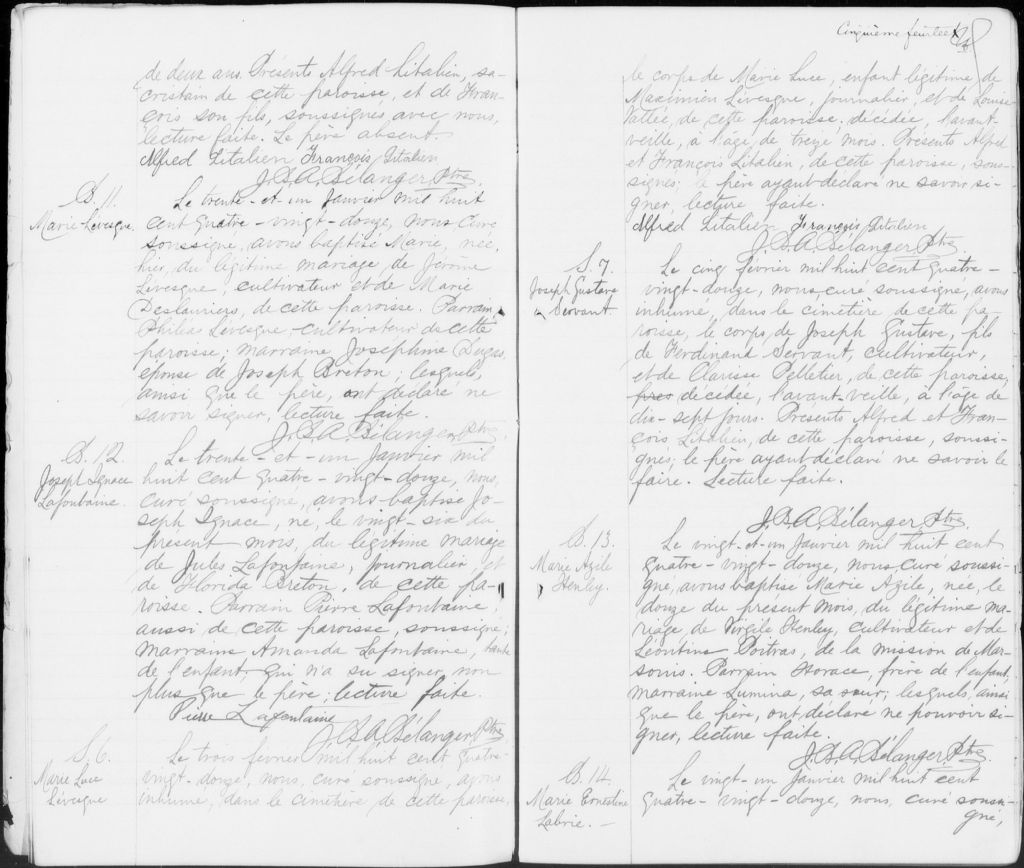 de deux ans. Présents Alfred Litalien, sa-
cristain de cette paroisse, et de Fran-
çois son fils, soussignés avec nous,
lecture faite. Le père absent.
Alfred Litalien François Litalien
J.B.A. Bélanger Ptre
B. 11.
Marie Lévesque.
Le trente-et-un Janvier mil huit
cent quatre-vingt-douze, nous curé
soussigné, avons baptisé Marie, née
hier, du légitime mariage de Jérôme
Lévesque, cultivateur et de Marie
Deslauriers, de cette paroisse. Parrain,
Philéas Lévesque, cultivateur de cette
paroisse; marraine Joséphine Dugas
épouse de Joseph Breton; lesquels,
ainsi que le père, ont déclaré ne
savoir signer, lecture faite.
J.B.A. Bélanger Ptre
B. 12.
Joseph Ignace
Lafontaine.
Le trente-et-un Janvier mil
huit cent quatre-vingt-douze, nous,
curé soussigné, avons baptisé Jo-
seph Ignace, né, le vingt-six du
présent mois, du légitime mariage
de Jules Lafontaine, journalier, et
de Florida Breton, de cette pa-
roisse. Parrain Pierre Lafontaine,
aussi de cette paroisse, soussigné;
marraine Amanda Lafontaine, tante
de l'enfant, qui n'a su signer, non
plus que le père; lecture faite.
Pierre Lafontaine
J.B.A. Bélanger Ptre
S. 6.
Marie Luce
Lévesque
Le trois février mil huit cent quatre-
vingt-douze, nous, curé soussigné, avons
inhumé, dans le cimetière de cette paroisse,
Cinquième feuillet
le corps de Marie Luce, enfant légitime de
Maximien Lévesque, journalier, et de Louise
Vallée, de cette paroisse, décidée, l'avant-
veille, à l'âge de treize mois. Présents Alfred
et François Litalien, de cette paroisse, sous-
signés; le père ayant déclaré ne savoir si-
gner, lecture faite.
Alfred Litalien François Litalien
J.B.A. Bélanger Ptre
S. 7.
Joseph Gustave
Servant.
Le cinq février mil huit cent quatre-
vingt-douze, nous, curé soussigné, avons
inhumé, dans le cimetière de cette pa-
roisse, le corps de Joseph Gustave, fils
de Ferdinand Servant, cultivateur,
et de Clarisse Pelletier, de cette paroisse,
décidée, l'avant-veille, à l'âge de
dix-sept jours. Présents Alfred et Fran-
çois Litalien, de cette paroisse, soussi-
gnés; le père ayant déclaré ne savoir le
faire. Lecture faite.
J.B.A. Bélanger Ptre
B. 13.
Marie Azile
Henley.
Le vingt-et-un Janvier mil huit cent
quatre-vingt-douze, nous curé soussi-
gné, avons baptisé Marie Azile, née, le
douze du présent mois, du légitime ma-
riage de Virgile Henley, cultivateur et de
Léontine Poitras, de la mission de Mar-
souis. Parrain Horace, frère de l'enfant,
marraine Lumina, sa sœur; lesquels, ainsi
que le père, ont déclaré ne pouvoir si-
gner, lecture faite.
J.B.A. Bélanger Ptre
B. 14.
Marie Ernestine
Labrie.
Le vingt-un Janvier mil huit cent
quatre-vingt-douze, nous, curé soussi-
gné,